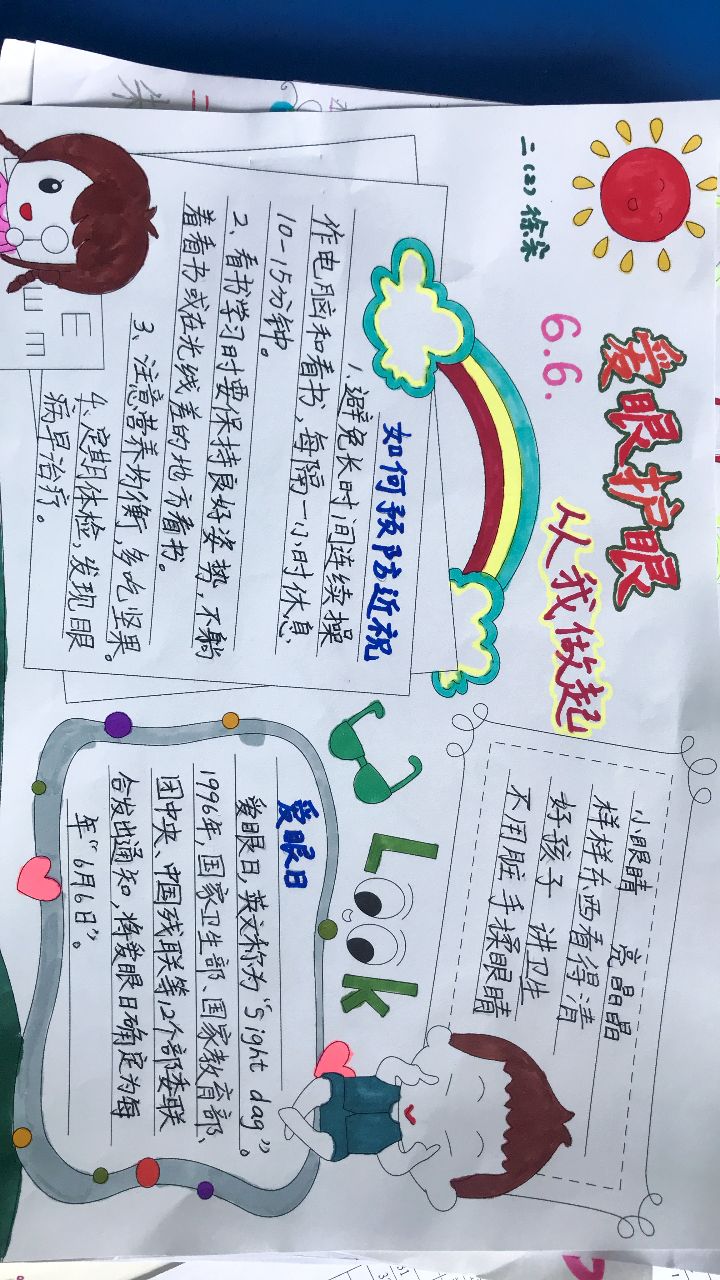 二(2) 徐朵
爱眼护眼
6.6.
从我做起
如何预防近视
1、避免长时间连续操
作电脑和看书,每隔一小时休息
10-15分钟。
2、看书学习时要保持良好姿势,不躺
着看书或在光线差的地方看书。
3、注意营养均衡,多吃坚果。
4、定期体检,发现眼
病早治疗。
E
E
Ш
m
小眼睛 亮晶晶
样样东西看得清
好孩子 讲卫生
不用脏手揉眼睛
Look
爱眼日
爱眼日,英文称为“Sight dag”。
1996年,国家卫生部、国家教育部、
团中央、中国残联等12个部委联
合发出通知,将爱眼日确定为每
年“6月6日”。